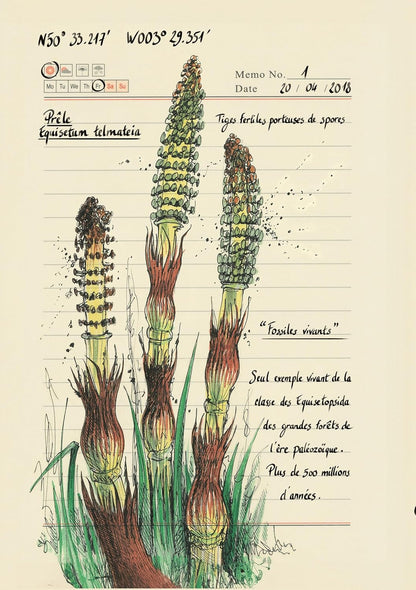 N50° 33.217' W003° 29.351'
Memo No. 1
Mo Tu We Th Fr Sa Su
Date 20 / 04 / 2018
Prêle
Equisetum telmateia
Tiges fertiles porteuses de spores
"Fossiles vivants"
Seul exemple vivant de la
classe des Equisetopsida
des grandes forêts de
l'ère paléozoïque.
Plus de 500 millions
d'années.